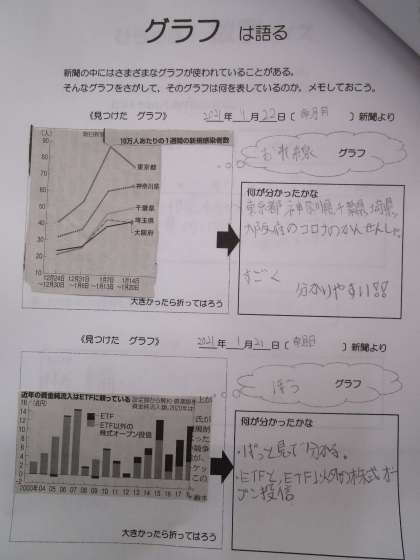 グラフ は語る
新聞の中にはさまざまなグラフが使われていることがある。
そんなグラフをさがして，そのグラフは何を表しているのか，メモしておこう。
《見つけた グラフ》 2021年 1月22日( )新聞より
グラフ
10万人あたりの1週間の新規感染者数
(人)
90
80
70
60
50
40
30
20
10
東京都
神奈川県
千葉県
埼玉県
大阪府
12月24日 12月31日 1月7日 1月14日
～12月30日 ～1月6日 ～1月13日 ～1月20日
大きかったら折ってはろう
何が分かったかな
東京都 神奈川県 千葉県 埼玉県
大阪府のコロナのかんせんしゃ
すごく
分かりやすい!!
《見つけた グラフ》 2021年 1月21日( )新聞より
グラフ
近年の資金純流入はETFに頼っている
(兆円)
16
14
12
10
8
6
4
2
0
ETF
ETF以外の
株式オープン投信
2000年 04 05 06 07 08 09 10 11 12 13 14 15 16 17
大きかったら折ってはろう
何が分かったかな
・ぱっと見て分かる。
・ETFと，ETF以外の株式オー
プン投信